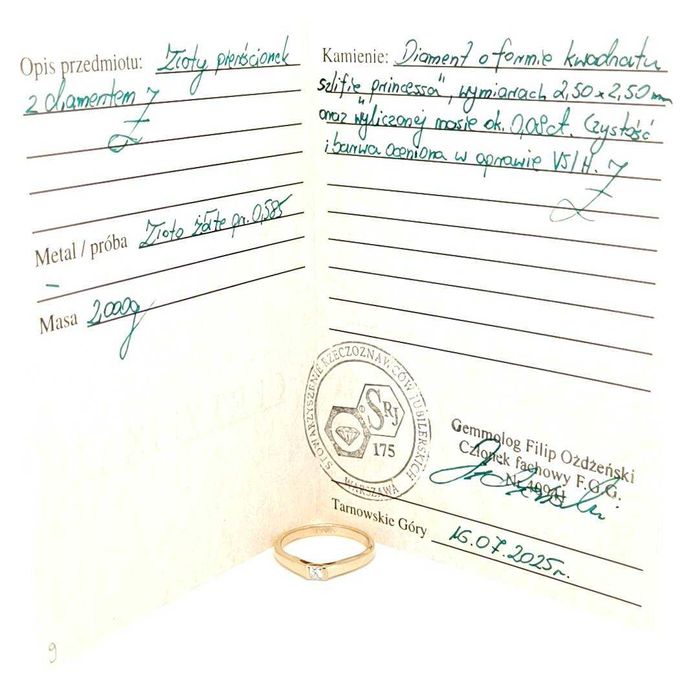 Opis przedmiotu: Złoty pierścionek
z diamentem
Metal / próba Złoto żółte pr. 0,585
-
Masa 2,000g
Kamienie: Diament o formie kwadratu
szlifie "princessa", wymiarach 2,50 x 2,50 mm
oraz wyliczonej masie ok. 0,08ct. Czystość
i barwa oceniona w oprawie VS/H.
STOWARZYSZENIE RZECZOZNAWCÓW JUBILERSKICH
SRJ
175
WARSZAWA
Gemmolog Filip Ożdżeński
Członek fachowy F.G.G.
Tarnowskie Góry 16.07.2025r.
9